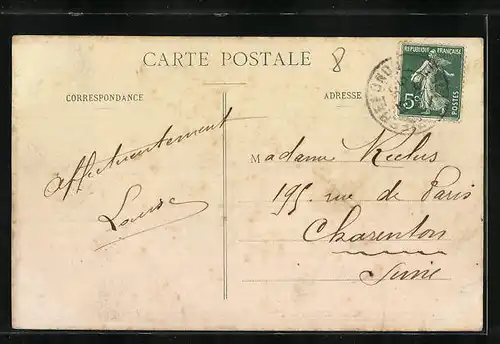 CARTE POSTALE
8
CORRESPONDANCE
ADRESSE
REPUBLIQUE FRANÇAISE
5c
POSTES
PIERREFONDS
Affectueusement
Louise
Madame Reclus
195. rue de Paris
Charenton
Seine